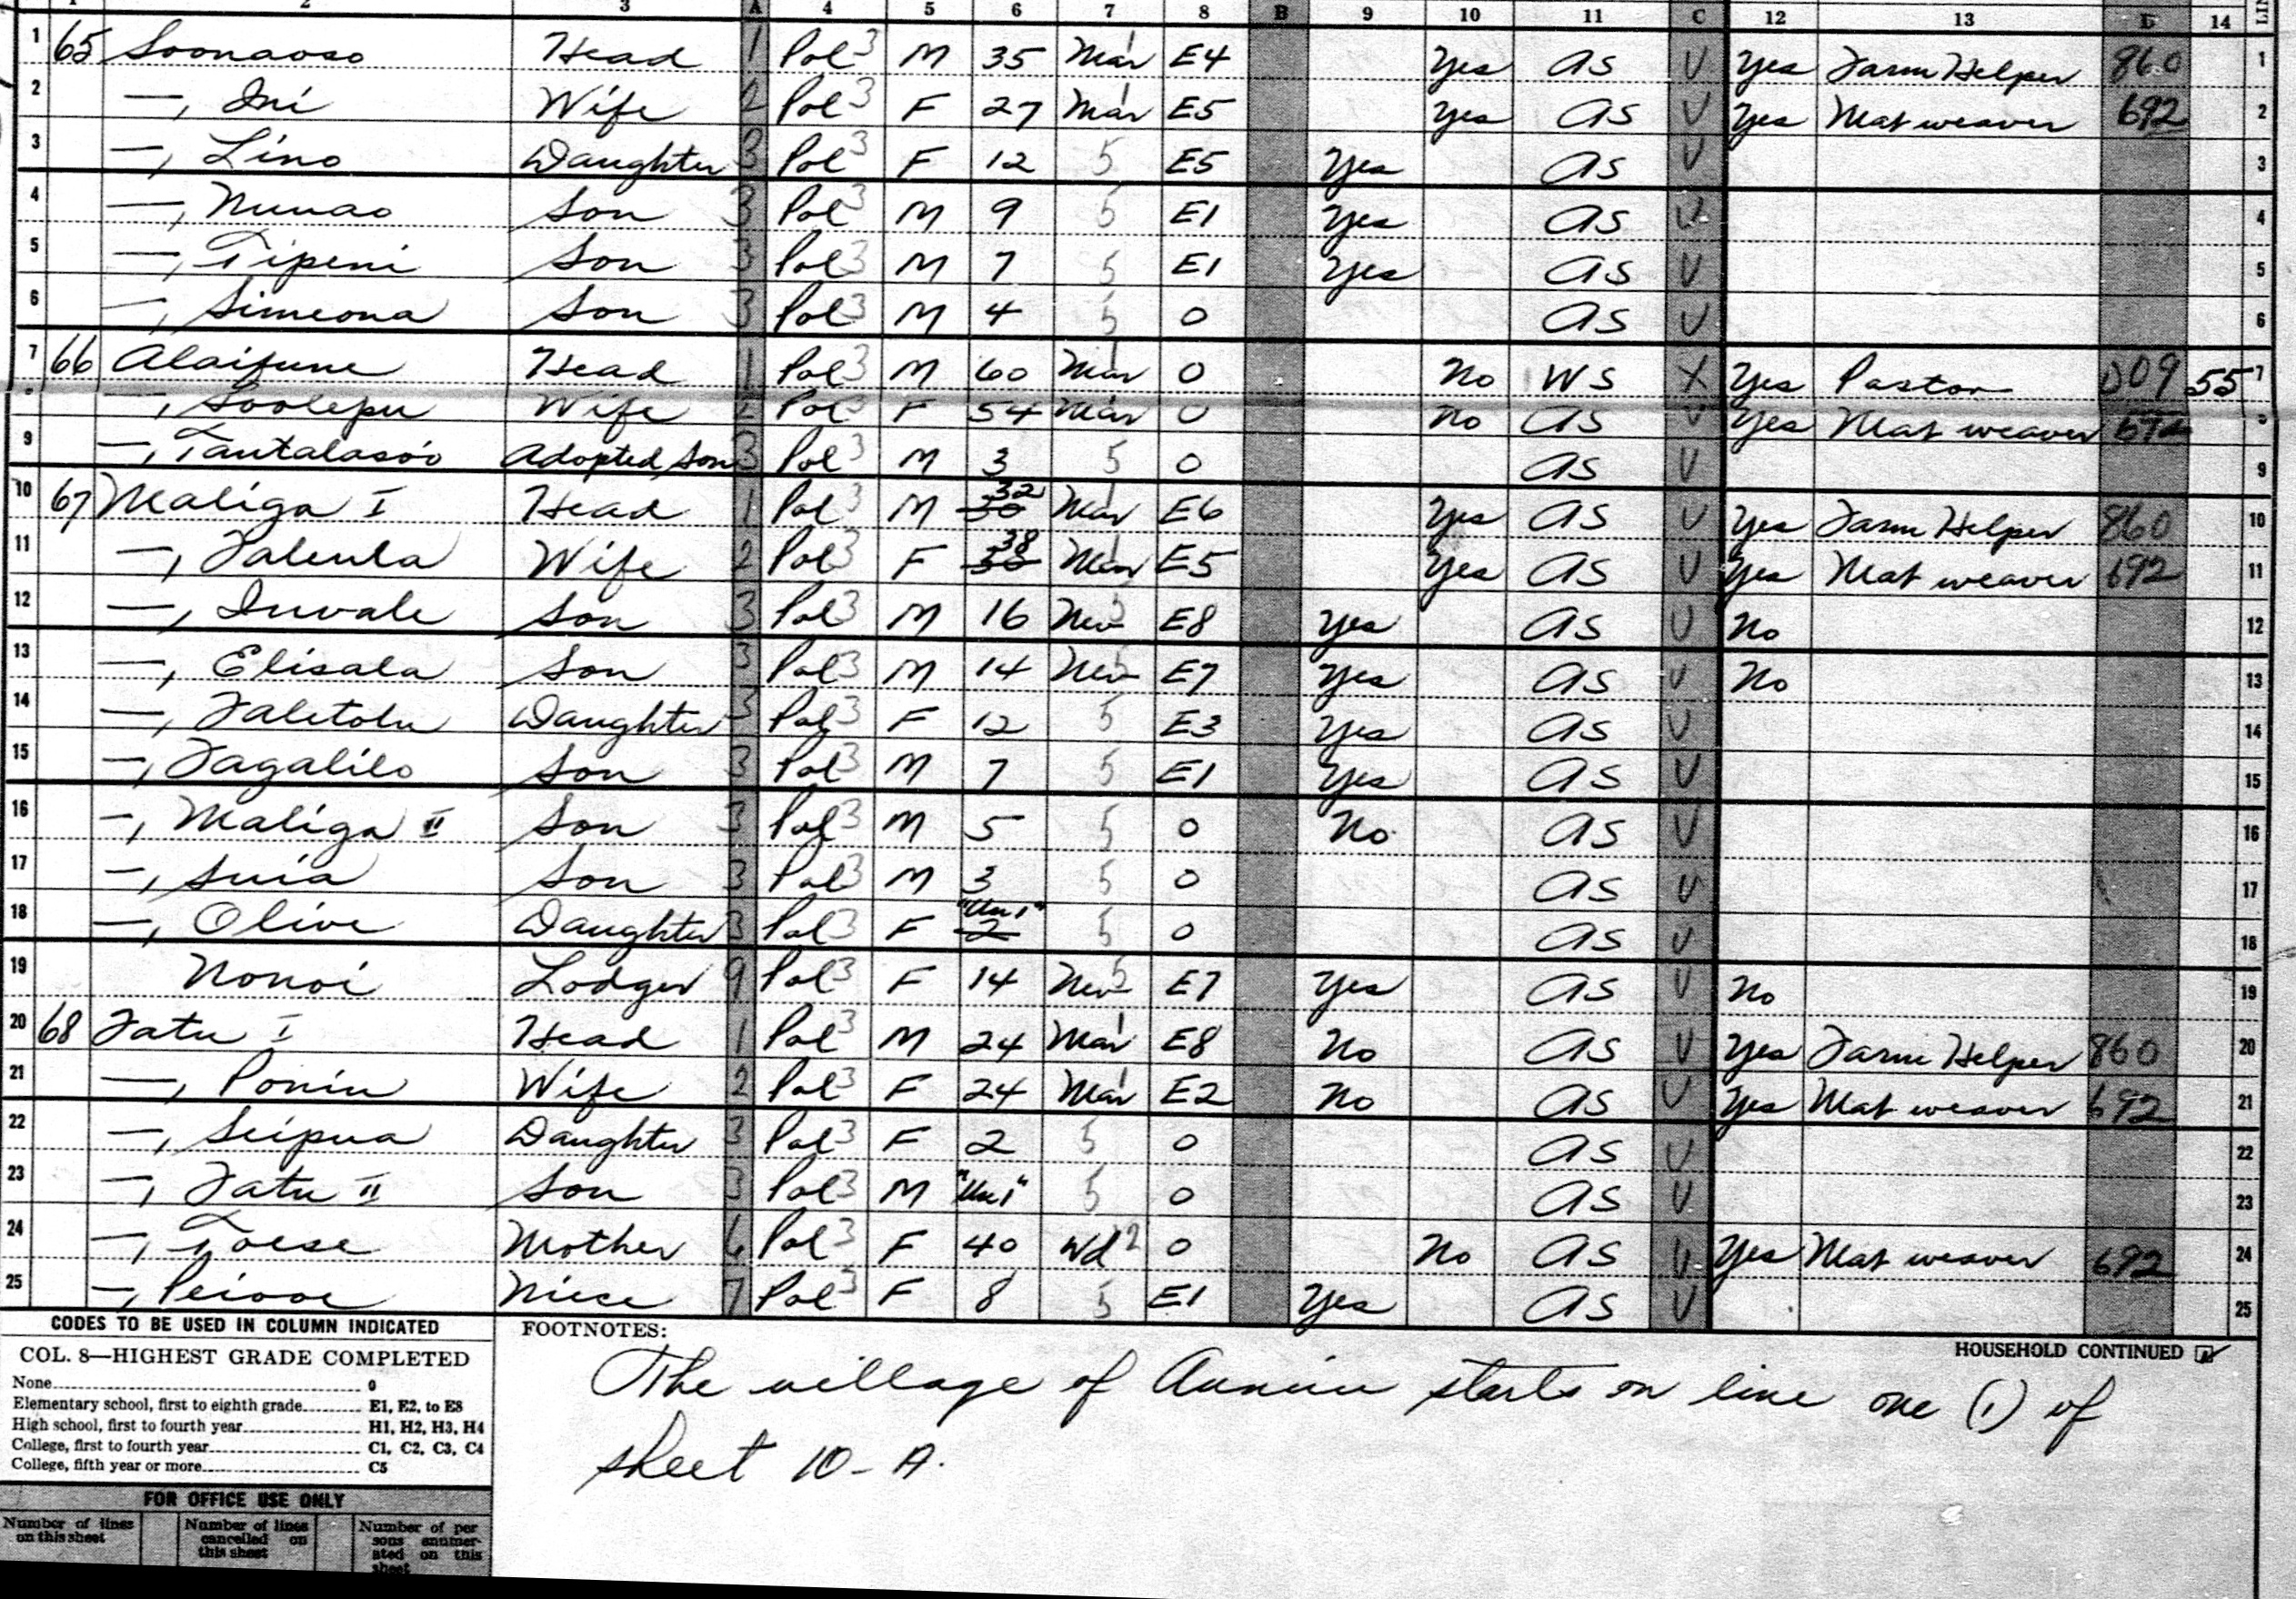 1 2 3 A 4 5 6 7 8 B 9 10 11 C 12 13 D 14
1 65 Soonaoso Head 1 Pol 3 M 35 Mar 1 E4 Yes AS V Yes Farm Helper 860 1
2 —, Ini Wife 2 Pol 3 F 27 Mar 1 E5 Yes AS V Yes Mat weaver 692 2
3 —, Lino Daughter 3 Pol 3 F 12 5 E5 Yes AS V 3
4 —, Nunao Son 3 Pol 3 M 9 5 E1 Yes AS V 4
5 —, Tipeni Son 3 Pol 3 M 7 5 E1 Yes AS V 5
6 —, Simeona Son 3 Pol 3 M 4 5 0 AS V 6
7 66 Alaifune Head 1 Pol 3 M 60 Mar 1 0 No WS X Yes Pastor 009 55 7
—, Soolepu Wife 2 Pol 3 F 54 Mar 0 No AS V Yes Mat weaver 692
9 —, Tautalasoo Adopted Son 3 Pol 3 M 3 5 0 AS V 9
10 67 Maliga I Head 1 Pol 3 M 30 32 Mar 1 E6 Yes AS V Yes Farm Helper 860 10
11 —, Faleula Wife 2 Pol 3 F 30 38 Mar 1 E5 Yes AS V Yes Mat weaver 692 11
12 —, Iuvale Son 3 Pol 3 M 16 Nev 5 E8 Yes AS V No 12
13 —, Elisala Son 3 Pol 3 M 14 Nev 5 E7 Yes AS V No 13
14 —, Faletolu Daughter 3 Pol 3 F 12 5 E3 Yes AS V 14
15 —, Fagalilo Son 3 Pol 3 M 7 5 E1 Yes AS V 15
16 —, Maliga II Son 3 Pol 3 M 5 5 0 No AS V 16
17 —, Suia Son 3 Pol 3 M 3 5 0 AS V 17
18 —, Olive Daughter 3 Pol 3 F 2 "Un 1" 5 0 AS V 18
19 Nonoi Lodger 9 Pol 3 F 14 Nev 5 E7 Yes AS V No 19
20 68 Fatu I Head 1 Pol 3 M 24 Mar 1 E8 No AS V Yes Farm Helper 860 20
21 —, Ponin Wife 2 Pol 3 F 24 Mar 1 E2 No AS V Yes Mat weaver 692 21
22 —, Seipua Daughter 3 Pol 3 F 2 5 0 AS V 22
23 —, Fatu II Son 3 Pol 3 M "Un 1" 5 0 AS V 23
24 —, Toese Mother 6 Pol 3 F 40 Wd 2 0 No AS V Yes Mat weaver 692 24
25 —, Peiooe Niece 7 Pol 3 F 8 5 E1 Yes AS V 25
CODES TO BE USED IN COLUMN INDICATED
COL. 8—HIGHEST GRADE COMPLETED
None 0
Elementary school, first to eighth grade E1, E2, to E8
High school, first to fourth year H1, H2, H3, H4
College, first to fourth year C1, C2, C3, C4
College, fifth year or more C5
FOR OFFICE USE ONLY
Number of lines on this sheet
Number of lines cancelled on this sheet
Number of persons enumerated on this sheet
FOOTNOTES:
HOUSEHOLD CONTINUED
The village of Aunuu starts on line one (1) of
sheet 10-A.